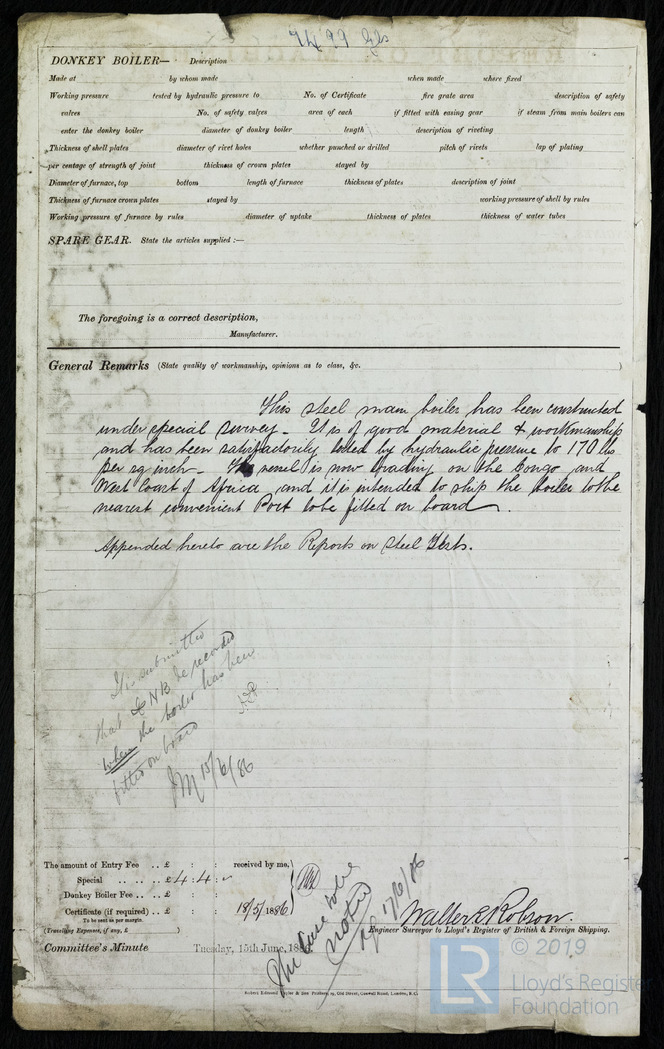 7499 Gls
DONKEY BOILER— Description
Made at by whom made when made where fixed
Working pressure tested by hydraulic pressure to No. of Certificate fire grate area description of safety
valves No. of safety valves area of each if fitted with easing gear if steam from main boilers can
enter the donkey boiler diameter of donkey boiler length description of riveting
Thickness of shell plates diameter of rivet holes whether punched or drilled pitch of rivets lap of plating
per centage of strength of joint thickness of crown plates stayed by
Diameter of furnace, top bottom length of furnace thickness of plates description of joint
Thickness of furnace crown plates stayed by working pressure of shell by rules
Working pressure of furnace by rules diameter of uptake thickness of plates thickness of water tubes
SPARE GEAR. State the articles supplied :—
The foregoing is a correct description,
Manufacturer.
General Remarks (State quality of workmanship, opinions as to class, &c. )
This steel main boiler has been constructed
under special survey. It is of good material & workmanship
and has been satisfactorily tested by hydraulic pressure to 170 lbs
per sq inch. This vessel is now trading on the Congo and
West Coast of Africa and it is intended to ship the boiler to the
nearest convenient Port to be fitted on board.
Appended hereto are the Reports on Steel Tests.
It is submitted
that NB be recorded
when the boiler has been
fitted on board
JM 15/6/86
The amount of Entry Fee .. £ : : received by me,
Special .. .. .. £ 4 : 4 :
Donkey Boiler Fee .. .. £ : :
Certificate (if required) .. £ : : 18/5/1886
To be sent as per margin.
(Travelling Expenses, if any, £ )
Committee's Minute Tuesday, 15th June, 188
noted
17/6/86
Walter L Robson.
Engineer Surveyor to Lloyd's Register of British & Foreign Shipping.
© 2019
LR
Lloyd's Register
Foundation